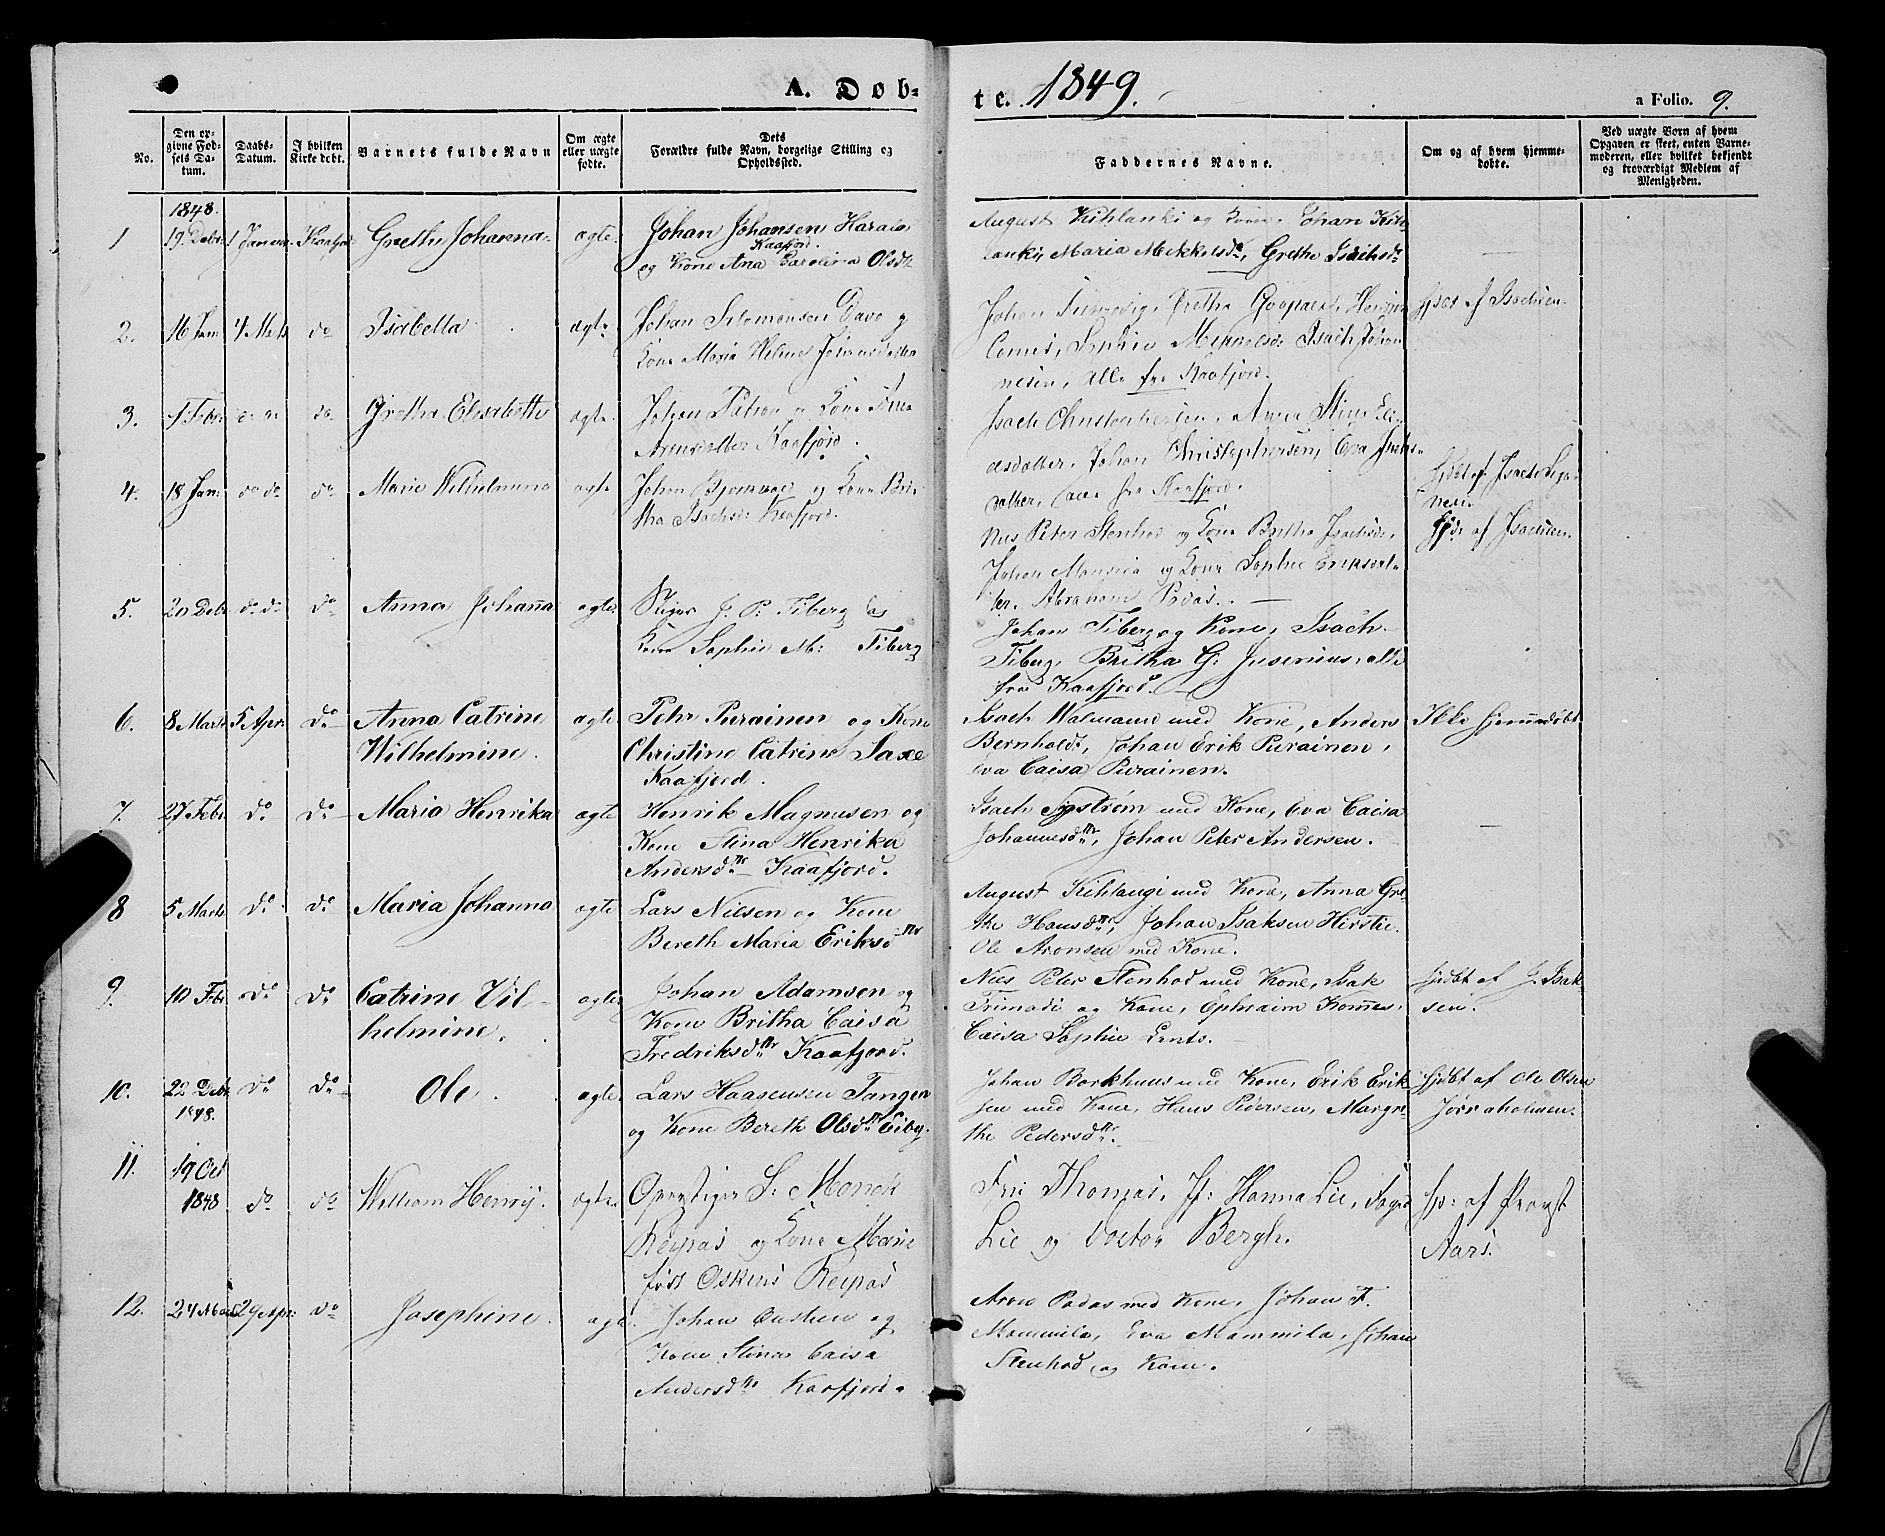 A. Døb-
te. 1849.
a Folio. 9.
No.
Den op-
givne Fød-
sels Da-
tum.
Daabs-
Datum.
I hvilken
Kirke døbt.
Barnets fulde Navn
Om ægte
eller uægte
fødte.
Dets
Forældre fulde Navn, borgelige Stilling og
Opholdssted.
Faddernes Navne.
Om og af hvem hjemme-
døbte.
Ved uægte Born af hvem
Opgaven er skeet, enten Barne-
moderen, eller hvilket bekjendt
og troværdigt Medlem af
Menigheden.
1848.
1 19 Debr 1 Januar Kaafjord Grethe Johanna ægte
Johan Johansen
Kaafjord.
og Kone Ana Carolina Olsdtr
August Kihlanki og Kone, Johan Kih-
lanki, Maria Mikkelsdr, Grethe Isachsdr
2. 16 Jan 4 Marts do Isabella ægte
Johan Salomonsen og
Kone Maria Helene Johannesdatter
Johan
Sophie Isach Johan-
nesen, alle fra Kaafjord.
af Isachsen.
3. 1 Febr do do do Grethe Elisabeth ægte
Johan og Kone
Kaafjord.
Isach Christophersen, Anna Stina
datter, Johan Christophersen, Eva
datter, alle fra Kaafjord.
4. 18 Jan do do do Marie Wilhelmina ægte
Johan og Kone Bri-
tha Isachsdr Kaafjord.
Nils Peter Stenhod og Kone Britha Isachsdr,
Johan og Kone Sophie Eriksdat-
ter, Abraham Padas.
af Isachsen.
5. 20 Debr do do do Anna Johanna ægte
Stiger J. P. Tiberg og
Kone Sophie M: Tiberg
Johan Tiberg og Kone, Isach
Tiberg, Britha G: Junenius, alle
fra Kaafjord.
6. 8 Marts 5 Apr. do Anna Catrine
Wilhelmine. ægte
Pehr Purainen og Kone
Christine Catrine Saxe
Kaafjord.
Isach Walmaand med Kone, Anders
Bernholdt, Johan Erik Purainen,
Eva Caisa Purainen.
Ikke hjemmedøbt
7. 27 Febr do do Maria Henrika ægte
Henrik Magnusen og
Kone Stina Henrika
Andersdtr Kaafjord.
Isach Nystrøm med Kone, Eva Caisa
Johannesdtr, Johan Peter Andersen.
8 5 Marts do do Maria Johanna ægte
Lars Nilsen og Kone
Bereth Maria Eriksdtr
August Kihlangi med Kone, Anna Gre-
the Hansdtr, Johan Isaksen Hirstie
Ole Aronsen med Kone.
9. 10 Febr do do Catrine Vil-
helmine. ægte
Johan Adamsen og
Kone Britha Caisa
Fredriksdtr Kaafjord.
Nils Peter Stenhod med Kone, Isak
Trimadi og Kone, Ephraim Komes,
Caisa Sophie Lents.
hjdøbt af J. Isak-
sen.
10. 22 Debr
1848. do do Ole ægte
Lars Haagensen Tangen
og Kone Bereth Olsdtr Eiby.
Johan Borkhuus med Kone, Erik Erik-
sen med Kone, Hans Pedersen, Margre-
the Pedersdtr.
hjdøbt af Ole Olsen
Jørraholmen.
11. 19 Oct
1848 do do William Henrij. ægte
Opsystiger S. Monck
Reipas og Kone Marie
født Oskins Reipas
Fru Thomas, Jf: Hanna Lie, Foged
Lie og Doctor Bergh.
hjd: af Provst
Aars.
12. 24 Marts 29 Apr: do Josephine. ægte
Johan og
Kone Stina Caisa
Andersdtr Kaafjord.
Aron Padas med Kone, Johan F.
Mammila, Eva Mammila, Johan
Stenhod og Kone.